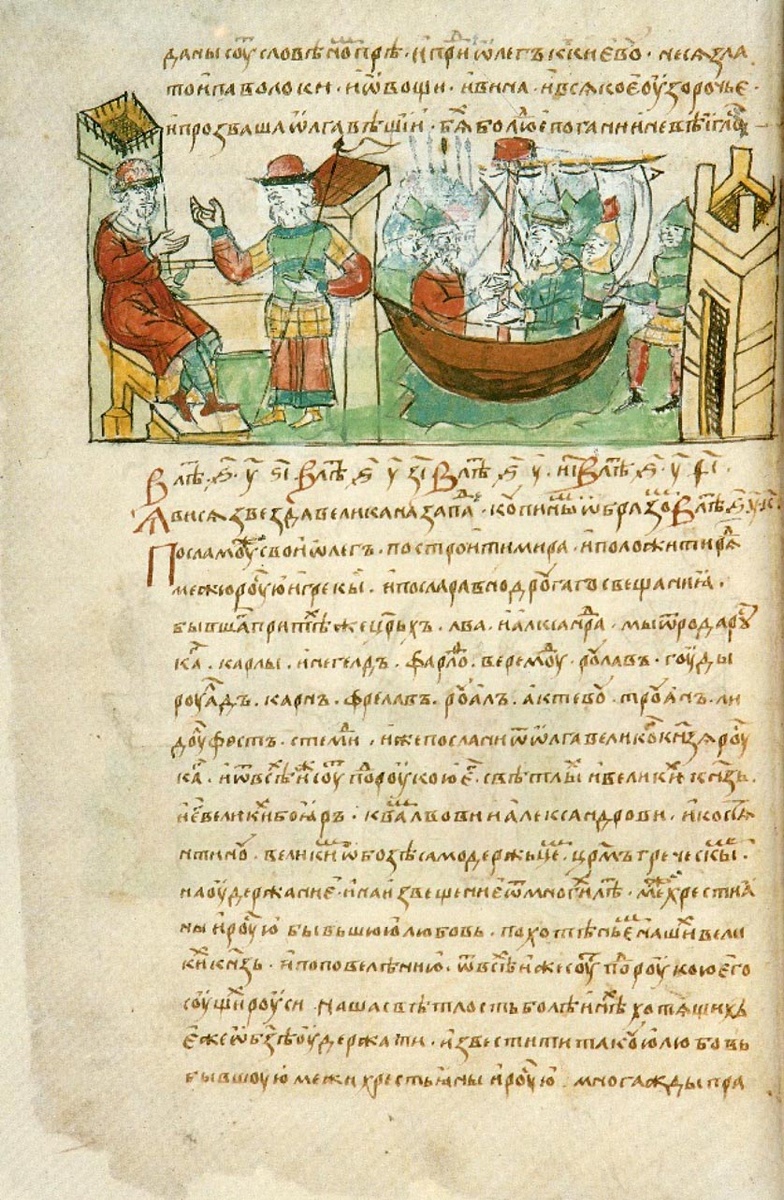 даны соуть словѣномъ прѣ · и приде ѡлегъ к киевоу · неся зла
то и паволоки · и ѡвощи · и вина · и всякое оузорочье ·
и прозваша ѡлга вѣщїи · бяхоу бо людїе погани и невѣигласи
В лѣ҃ · ѕ҃ · у҃ · ѕ҃і В лѣ҃ · ѕ҃ · у҃ · з҃і В лѣ҃ · ѕ҃ · у҃ · н҃і В лѣ҃ · ѕ҃ · у҃ · ѳ҃і ·
Явися звезда велика на западѣ · копиинымъ ѡбразомъ В лѣ҃ · ѕ҃ · у҃ · к҃ ·
Посла моужи свои ѡлегъ · построити мира · и положити ряд
межю роусью и грекы · и посла равно дроугаго свещания ·
бывшаго при тѣхже ц҃рьхъ · лва · и александра · мы ѿ рода роу
ска · карлы · инегелдъ · фарлоф · веремоуд · роулавъ · гоуды
роуалдъ · карнъ · фрелавъ · роуалъ · актевоу · троуанъ · ли
доулфостъ · стемид · иже послани ѿ ѡлга великого кн҃зя роу
скаго · и ѿ всѣх иже соуть под роукою его · свѣтлых и великих кн҃зь ·
и его великих бояръ · к вам лвови и александрови · и костя
нтиноу · великим ѡ бозѣ самодержьцем · ц҃рмъ греческым ·
на оудержание · и на извещение ѿ многих лѣт · меж хрестиа
ны и роусью бывьшюю любовь · похотѣньем наших вели
ких кн҃зь · и по повелѣнию · ѿ всѣх иже соуть под роукою его
соущих роуси · наша свѣтлость болѣ инѣх хотящих
еже ѡ бз҃ѣ оудержати · и известити такоую любовь
бывшоую межи хрестьяны и роусью · многажды пра